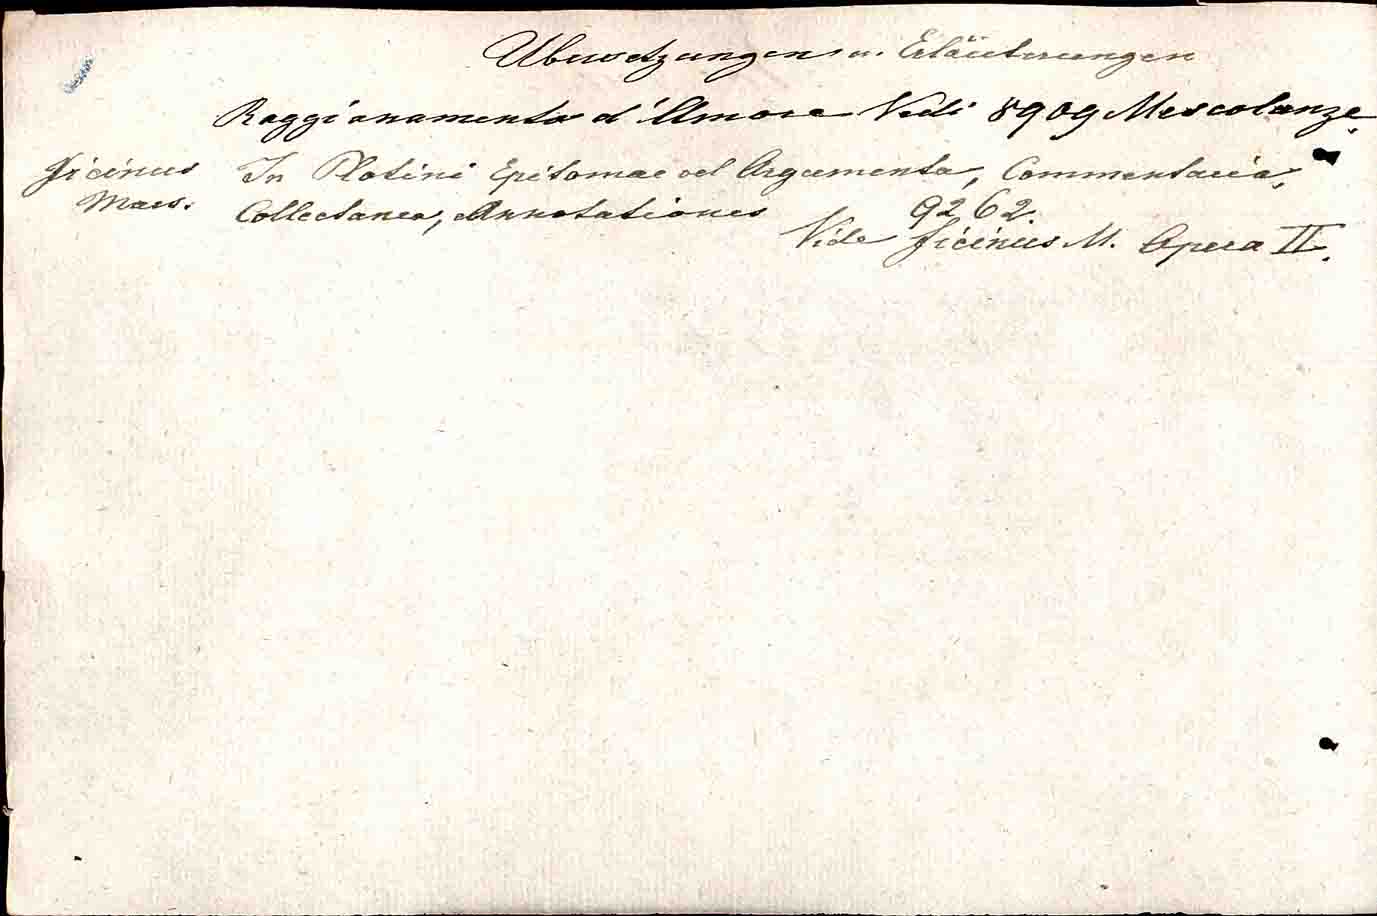 Übersetzungen u. Erläuterungen
Raggionamento d'Amore Vedi 8909 Mescolanze.
Ficinus In Plotini Epitomae vel Argumenta, Commentaria,
Mars. Collectanea, Annotationes 9262.
Vide Ficinus M. Opera II.